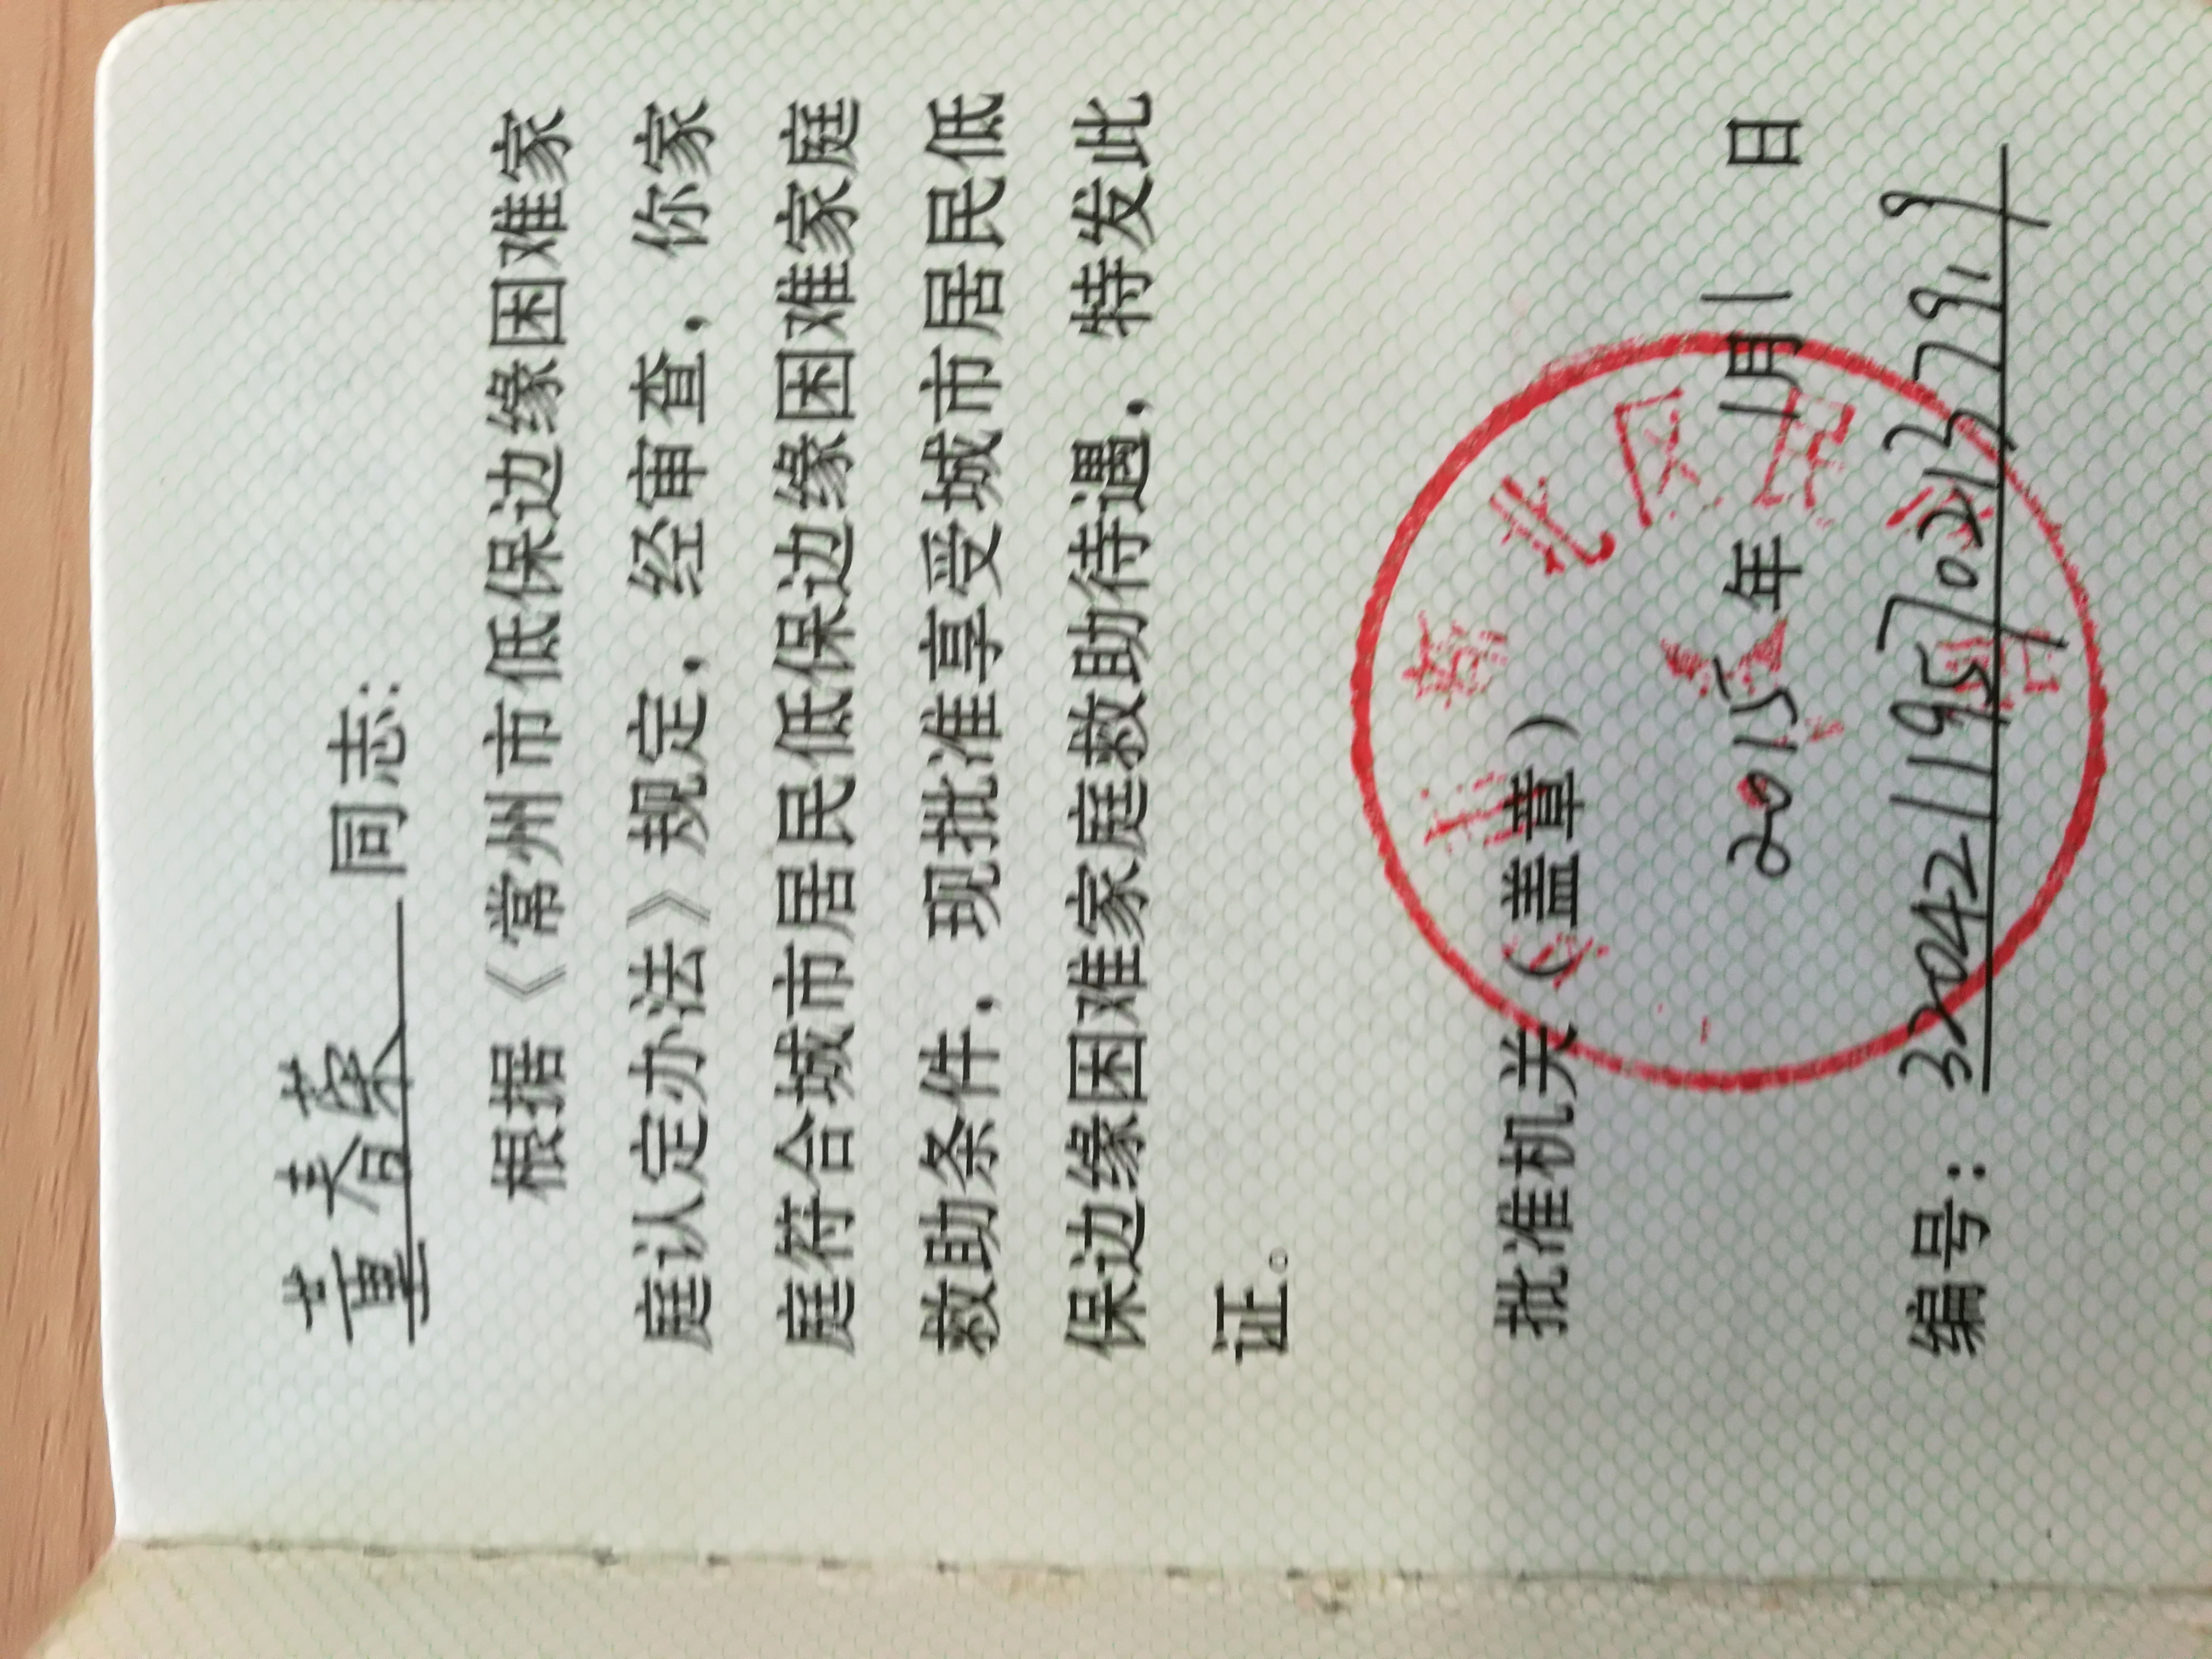 董春荣 同志：
根据《常州市低保边缘困难家
庭认定办法》规定，经审查，你家
庭符合城市居民低保边缘困难家庭
救助条件，现批准享受城市居民低
保边缘困难家庭救助待遇，特发此
证。
批准机关（盖章）
2015年1月1日
编号：3204211957021237919
北区民